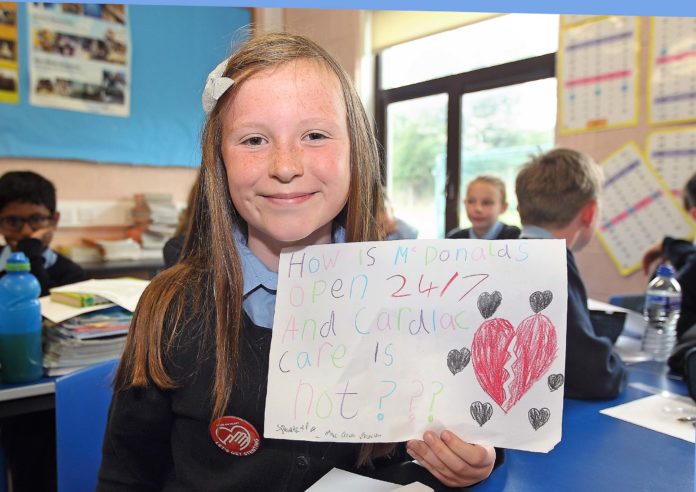 How is McDonalds
Open 24/7
And Cardiac
care is
not???